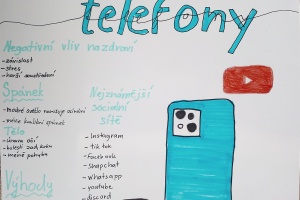 telefony
Negativní vliv na zdraví
- závislost
- stres
- horší soustředění
Spánek
- modré světlo narušuje usínání
- kvalitní spánek
Tělo
- únava očí
- bolesti zad, krku
- méně pohybu
Výhody
Nejznámější
sociální
sítě
- Instagram
- tik tok
- facebook
- snapchat
- whatsapp
- youtube
- discord